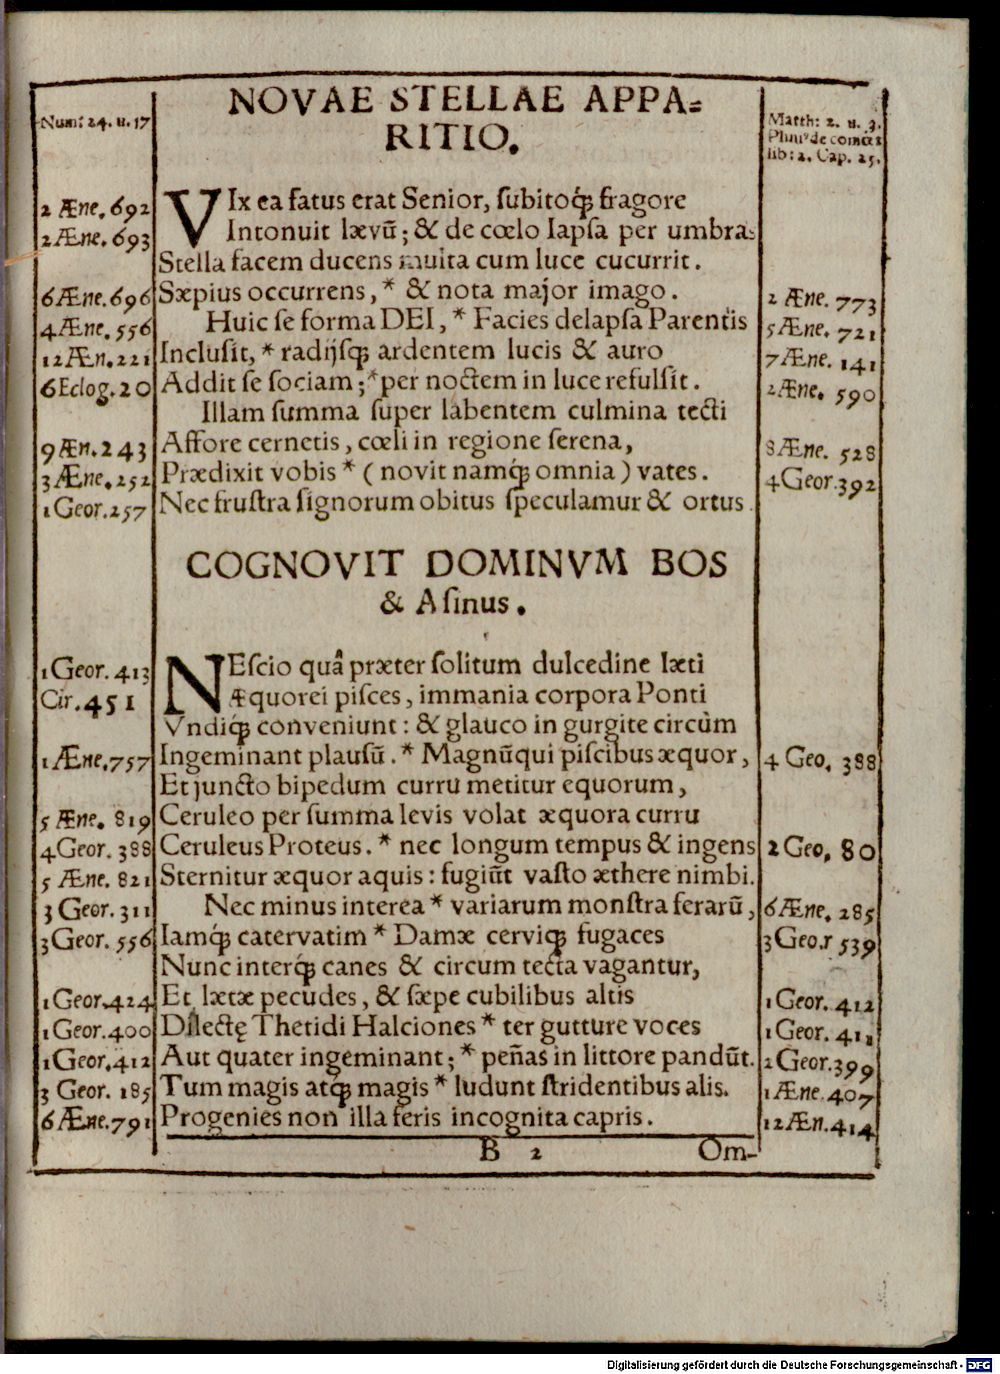 NOVAE STELLAE APPA=
RITIO.
Num: 24. u. 17
Matth: 2. u. 3.
Plini⁹ de cometis
lib: 2. Cap. 25.
2 Æne. 692 VIx ea fatus erat Senior, ſubitoq́; fragore
2 Æne. 693 Intonuit lævũ; & de cœlo lapſa per umbras
Stella facem ducens multa cum luce cucurrit.
6 Æne. 696 Sæpius occurrens, * & nota major imago. 2 Æne. 773
4 Æne. 556 Huic ſe forma DEI, * Facies delapſa Parentis 5 Æne. 721
12 Æn. 221 Incluſit, * radijſq; ardentem lucis & auro 7 Æne. 141
6 Eclog. 20 Addit ſe ſociam; * per noctem in luce refulſit. 2 Æne. 590
Illam ſumma ſuper labentem culmina tecti
9 Æn. 243 Affore cernetis, cœli in regione ſerena, 8 Æne. 528
3 Æne. 252 Prædixit vobis * ( novit namq́; omnia ) vates. 4 Geor. 392
1 Geor. 257 Nec fruſtra ſignorum obitus ſpeculamur & ortus.
COGNOVIT DOMINVM BOS
& Aſinus.
1 Geor. 413 NEſcio quâ præter ſolitum dulcedine læti
Cir. 451 Æquorei piſces, immania corpora Ponti
Vndiq́; conveniunt: & glauco in gurgite circùm
1 Æne. 757 Ingeminant plauſũ. * Magnũ qui piſcibus æquor, 4 Geo. 388
Et juncto bipedum curru metitur equorum,
5 Æne. 819 Ceruleo per ſumma levis volat æquora curru
4 Geor. 388 Ceruleus Proteus. * nec longum tempus & ingens 2 Geo. 80
5 Æne. 821 Sternitur æquor aquis: fugiũt vaſto æthere nimbi.
3 Geor. 311 Nec minus interea * variarum monſtra ferarũ, 6 Æne. 285
3 Geor. 556 Iamq́; catervatim * Damæ cerviq; fugaces 3 Geo.r 539
Nunc interq́; canes & circum tecta vagantur,
1 Geor. 424 Et lætæ pecudes, & ſæpe cubilibus altis 1 Geor. 412
1 Geor. 400 Dilectę Thetidi Halciones * ter gutture voces 1 Geor. 411
1 Geor. 412 Aut quater ingeminant; * peñas in littore pandũt. 2 Geor. 399
3 Geor. 185 Tum magis atq; magis * ludunt ſtridentibus alis. 1 Æne. 407
6 Æne. 791 Progenies non illa feris incognita capris. 12 Æn. 414
B 2 Om-
Digitalisierung gefördert durch die Deutsche Forschungsgemeinschaft - DFG